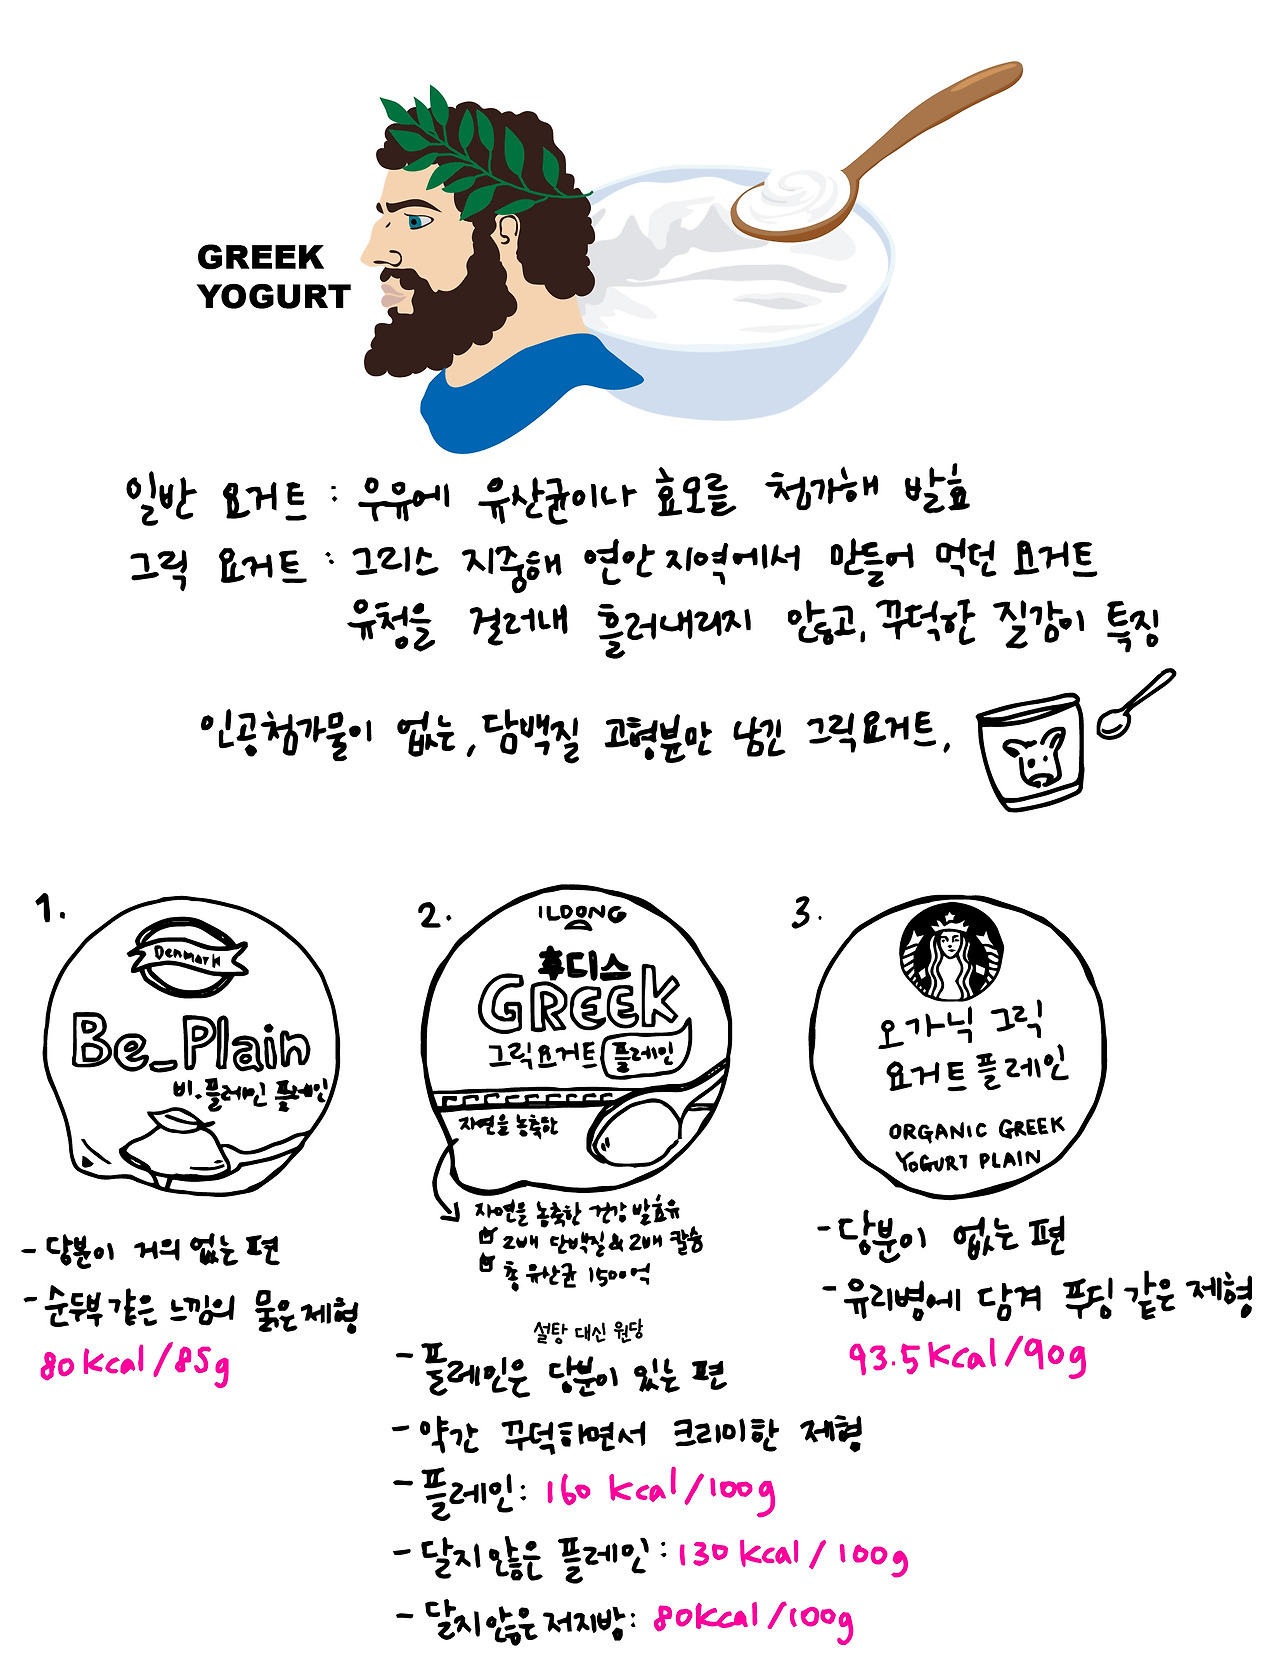 GREEK
YOGURT
일반 요거트 : 우유에 유산균이나 효모를 첨가해 발효
그릭 요거트 : 그리스 지중해 연안 지역에서 만들어 먹던 요거트
유청을 걸러내 흘러내리지 않고, 꾸덕한 질감이 특징
인공첨가물이 없는, 담백질 고형분만 남긴 그릭요거트,
1.
Denmark
Be_Plain
비.플레인 플레인
- 당분이 거의 없는 편
- 순두부 같은 느낌의 묽은 제형
80 kcal/85g
2.
ILDONG
후디스
GREEK
그릭요거트 플레인
자연을 농축한
자연을 농축한 건강 발효유
2배 단백질 & 2배 칼슘
총 유산균 1500억
설탕 대신 원당
- 플레인은 당분이 있는 편
- 약간 꾸덕하면서 크리미한 제형
- 플레인: 160 kcal/100g
- 달지않은 플레인: 130 kcal/100g
- 달지않은 저지방: 80kcal/100g
3.
오가닉 그릭
요거트 플레인
ORGANIC GREEK
YOGURT PLAIN
- 당분이 없는 편
- 유리병에 담겨 푸딩 같은 제형
93.5 kcal/90g